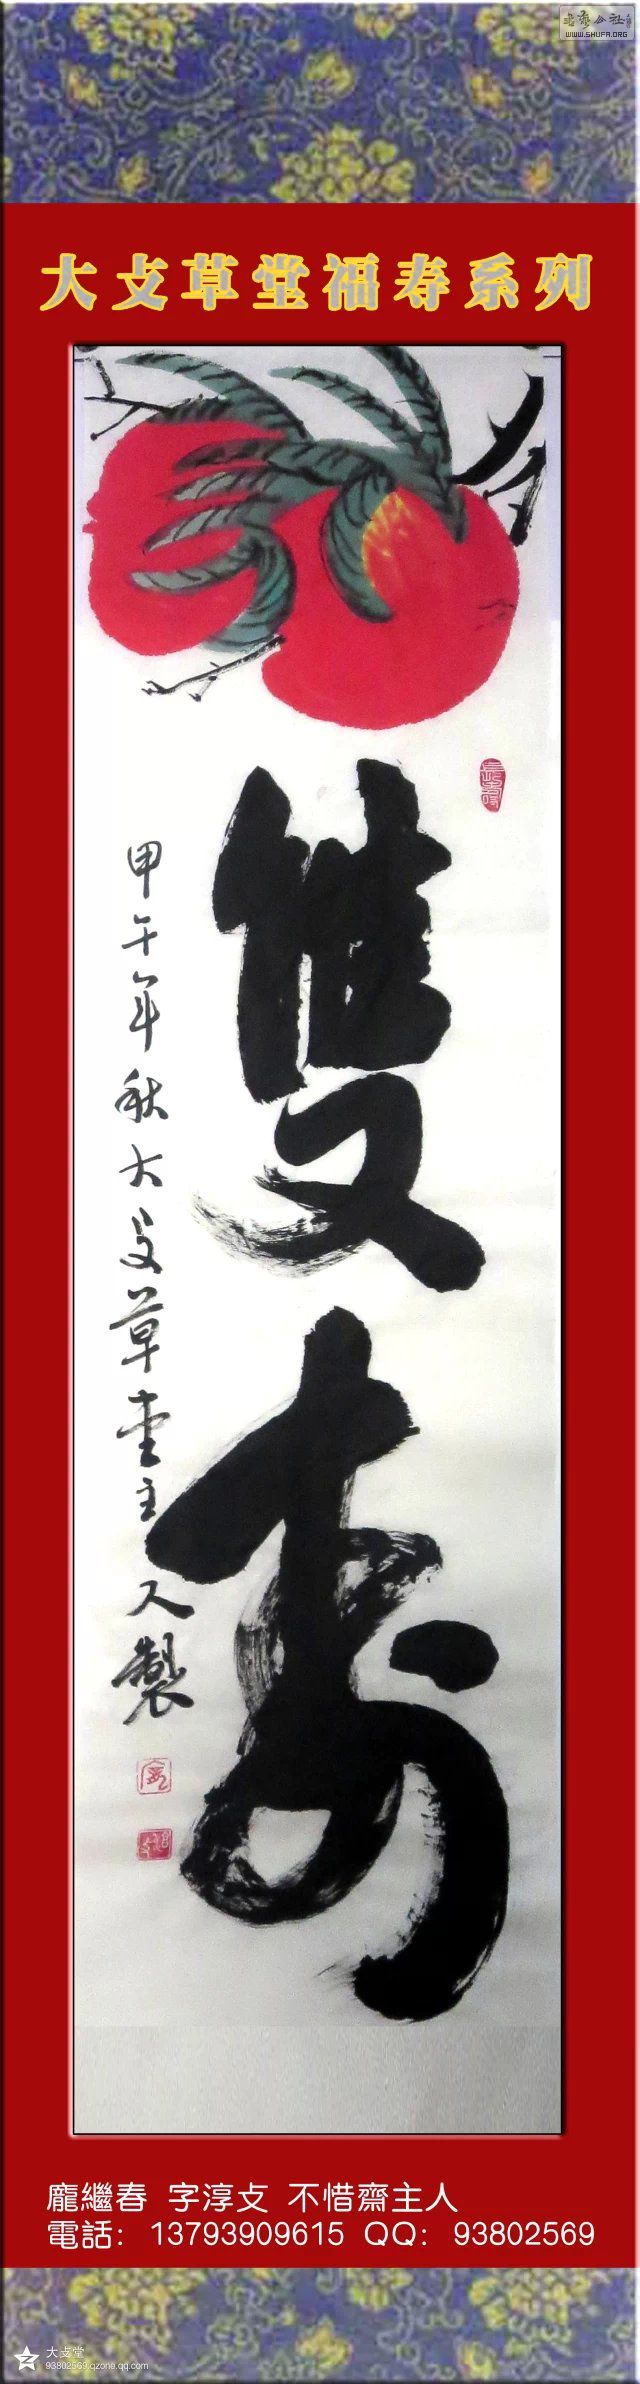 书法公社
WWW.SHUFA.ORG
大攴草堂福寿系列
雙壽
長壽
甲午年秋大攴草堂主人製
龐繼春 字淳攴 不惜齋主人
電話: 13793909615 QQ: 93802569
大攴堂
93802569.qzone.qq.com